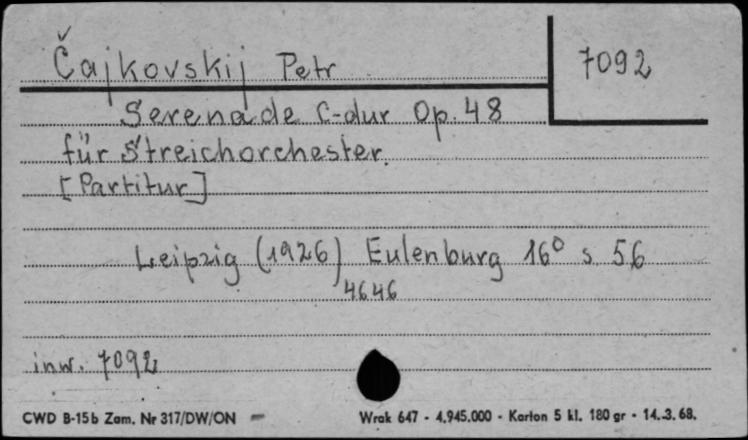 Čajkovskij Petr
7092
Serenade C-dur Op. 48
für Streichorchester.
[Partitur]
Leipzig (1926) Eulenburg 16° s 56
4646
inw. 7092
CWD B-15b Zam. Nr 317/DW/ON
Wrak 647 - 4.945.000 - Karton 5 kl. 180 gr - 14.3.68.